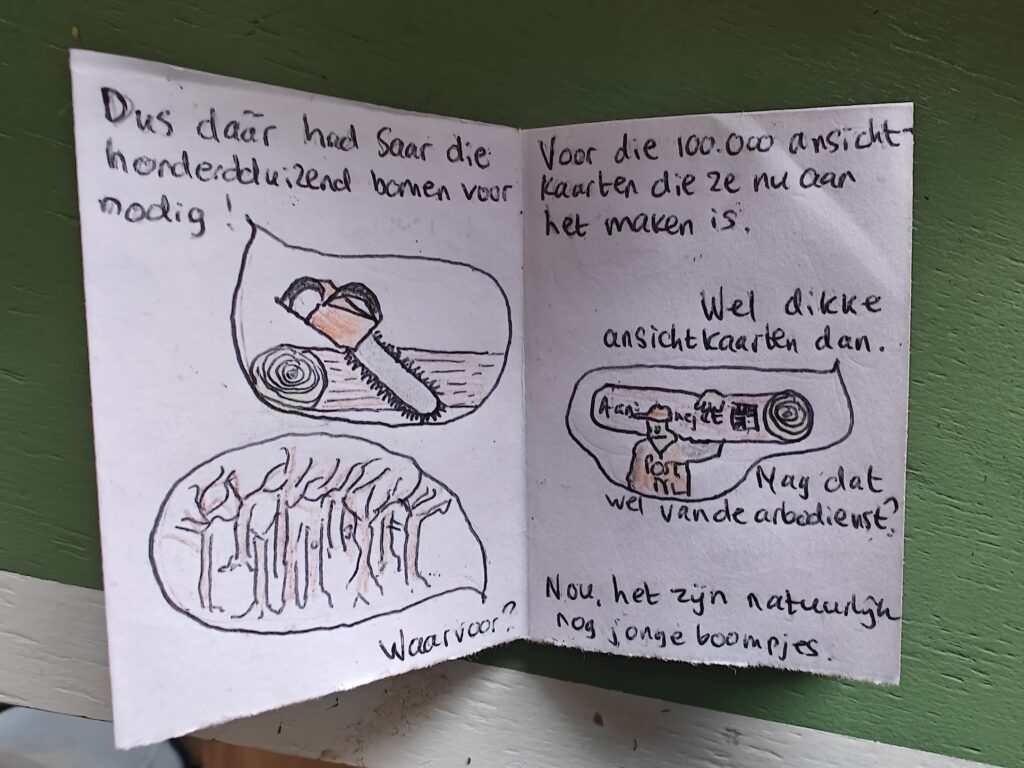 Dus daār had Saar die
honderdduizend bomen voor
nodig!
Waarvoor?
Voor die 100.000 ansicht-
kaarten die ze nu aan
het maken is.
Wel dikke
ansichtkaarten dan.
Aan
POST
NL
Mag dat
wel van de arbodienst?
Nou, het zijn natuurlijk
nog jonge boompjes.